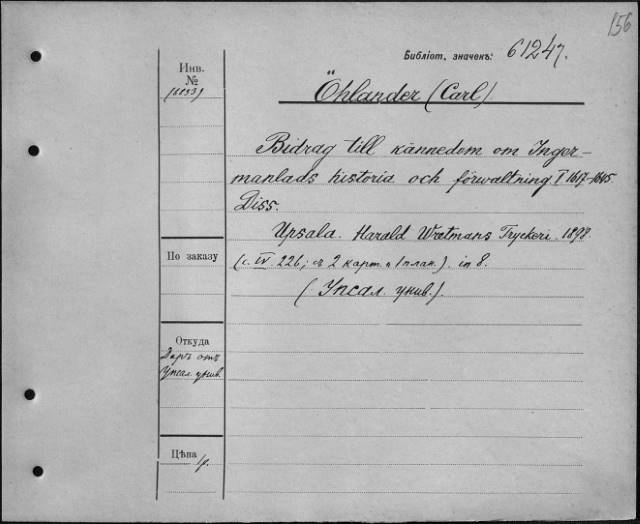 156
Библіот. значекъ: 61247.
Инв.
№
(11339)
Öhlander (Carl).
Bidrag till kännedom om Inger-
manlads historia och förwaltning I 1617-1645.
Diss.
Upsala. Harald Wretmans Tryckeri. 1898.
По заказу
(с. IV. 226; съ 2 карт. и 1 план.). in 8.
(Упсал. унив.).
Откуда
Даръ отъ
Упсал. унив.
Цѣна
1р.